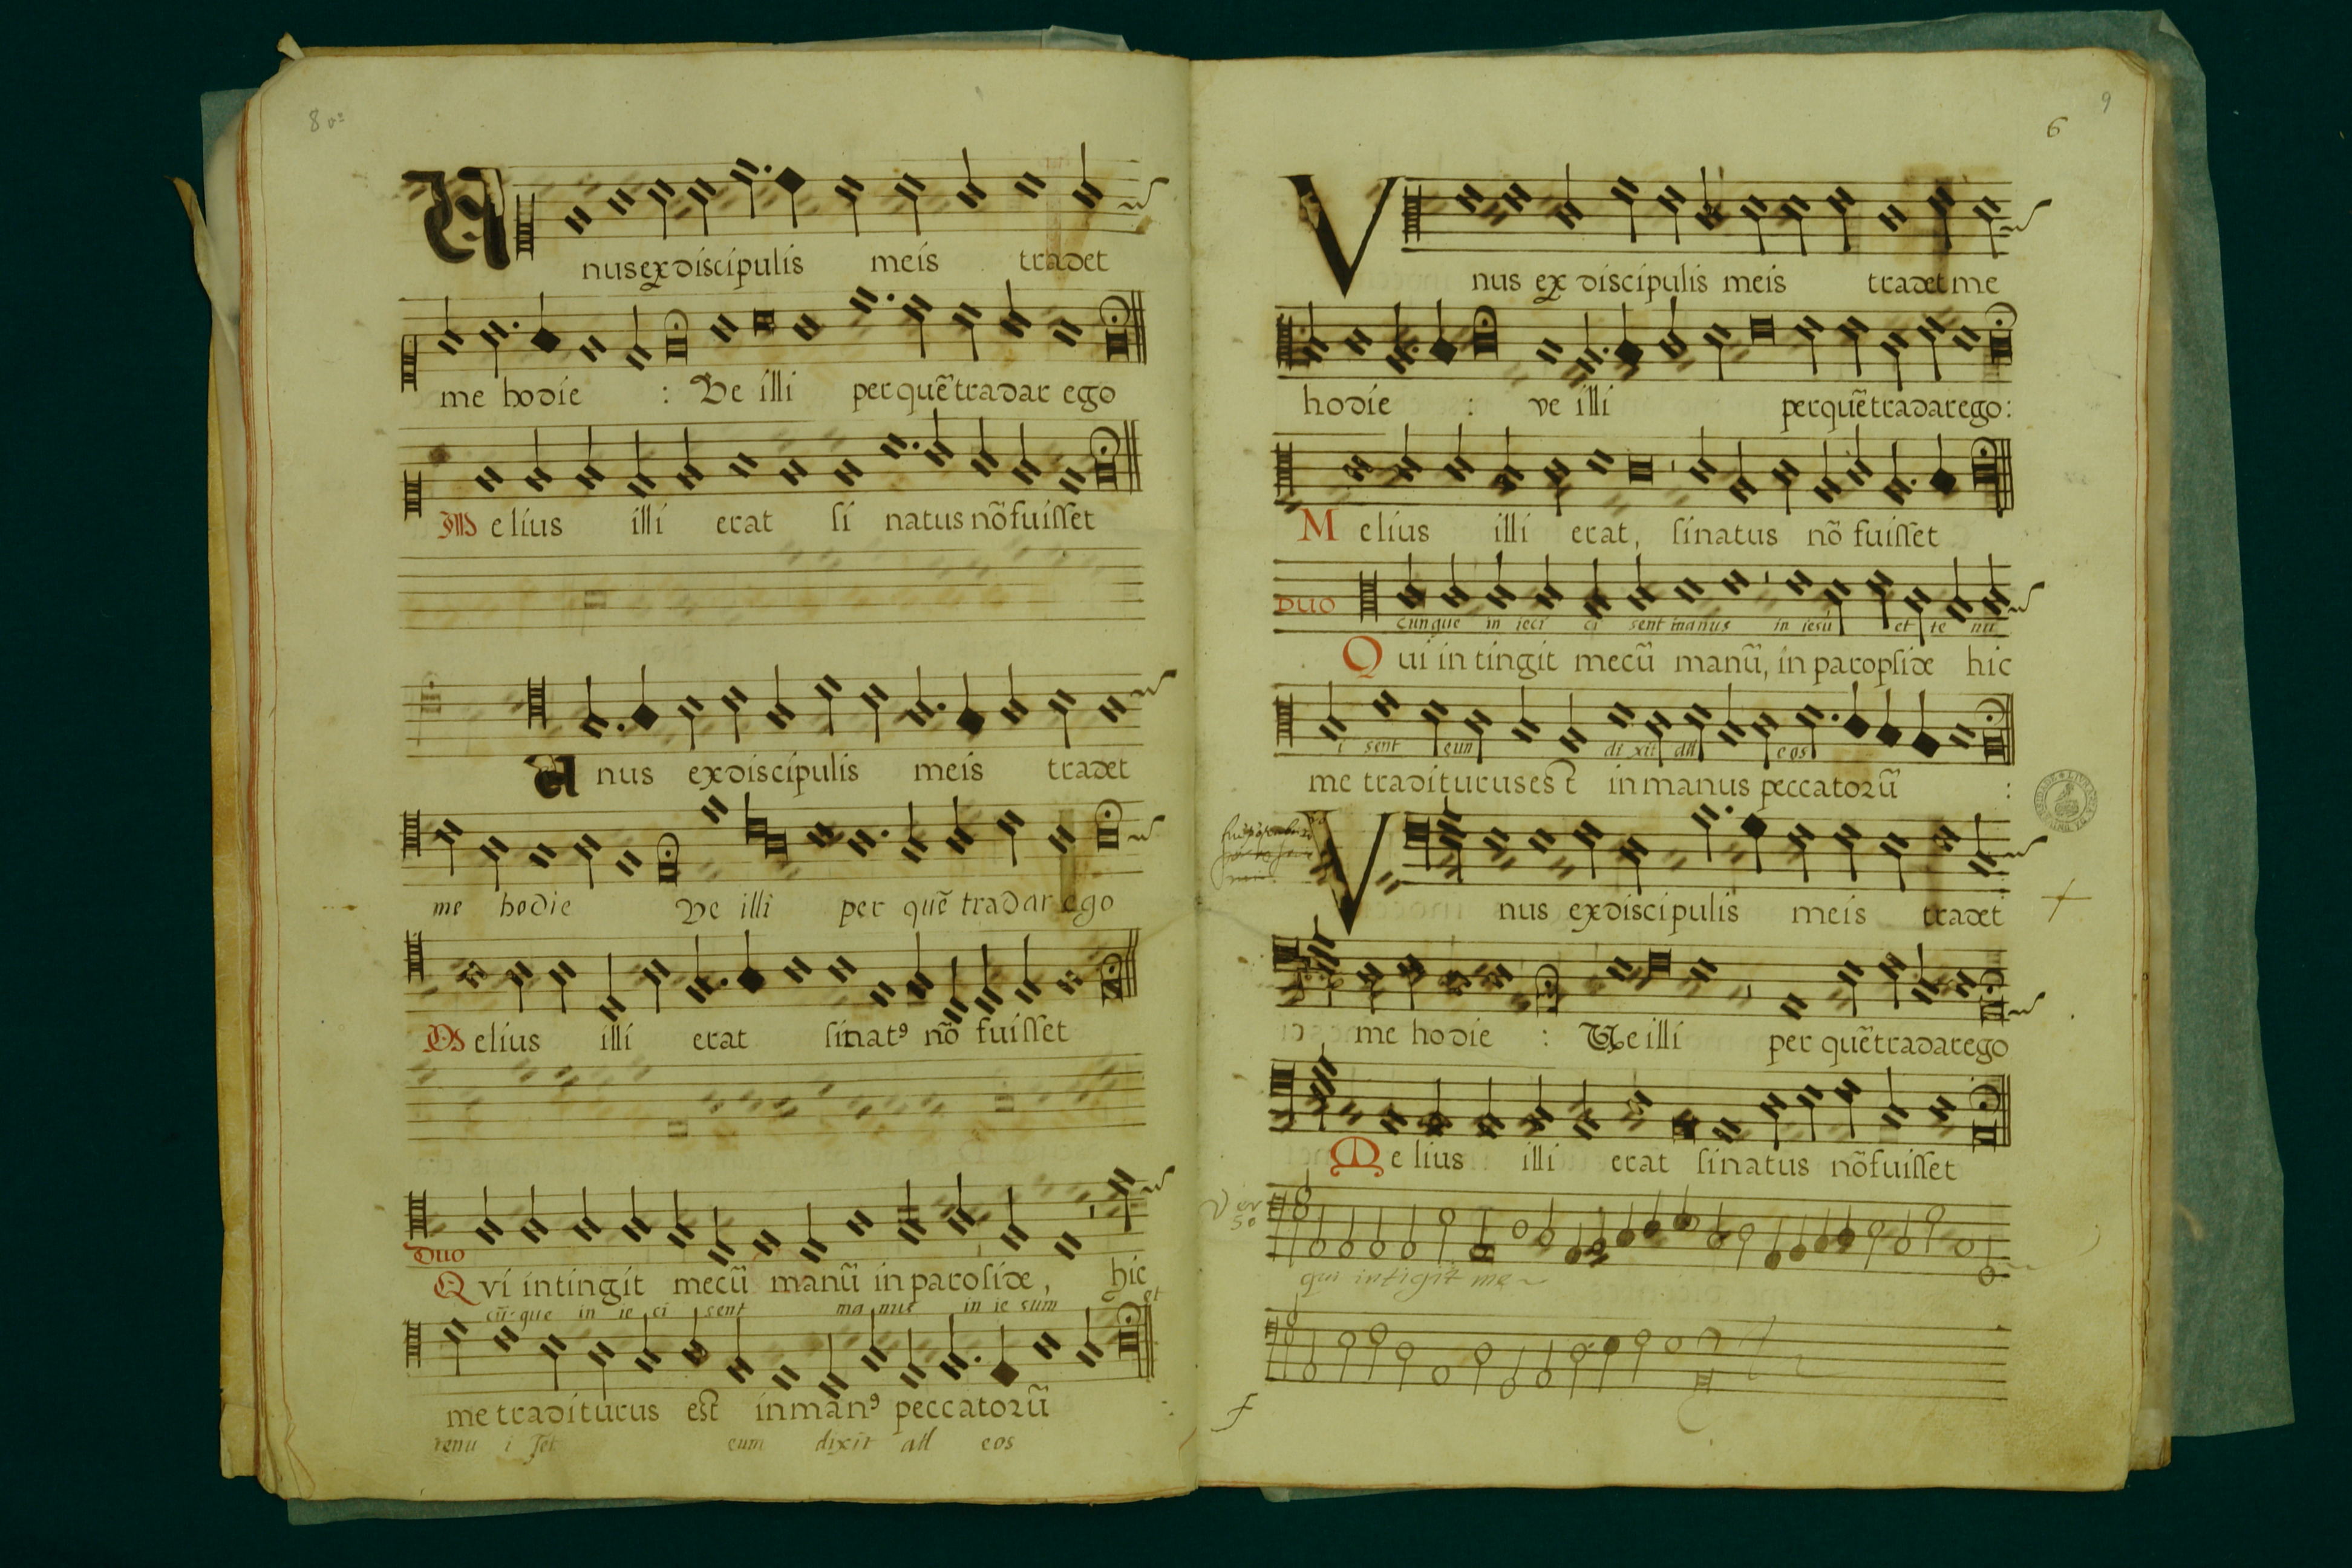 8 vº
Unus ex discipulis meis tradet
me hodie : Ve illi per quē tradar ego
Melius illi erat si natus nō fuisset
Unus ex discipulis meis tradet
me hodie Ve illi per quē tradar ego
Melius illi erat si natꝯ nō fuisset
Duo
Qvi intingit mecū manū in paroside, hic
cū-que in ie ci sent ma nus in ie sum et
me traditurus est in manꝯ peccatorū :
tenu i set eum dixit all eos
9
6
Vnus ex discipulis meis tradet me
hodie : ve illi per quē tradar ego:
Melius illi erat, si natus nō fuisset
DUO
cunque in ieci ci sent manus in iesū et te nū
Qui in tingit mecū manū, in paropside hic
i sent eun di xit all eos
me traditurus est in manus peccatorū :
Vnus ex discipulis meis tradet
me hodie : Ve illi per quē tradar ego
Melius illi erat si natus nō fuisset
Ver
so
qui intigit me